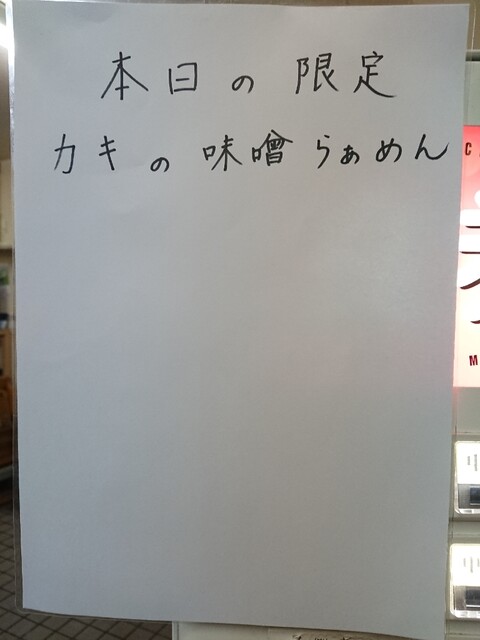 本日の限定
カキの味噌らぁめん